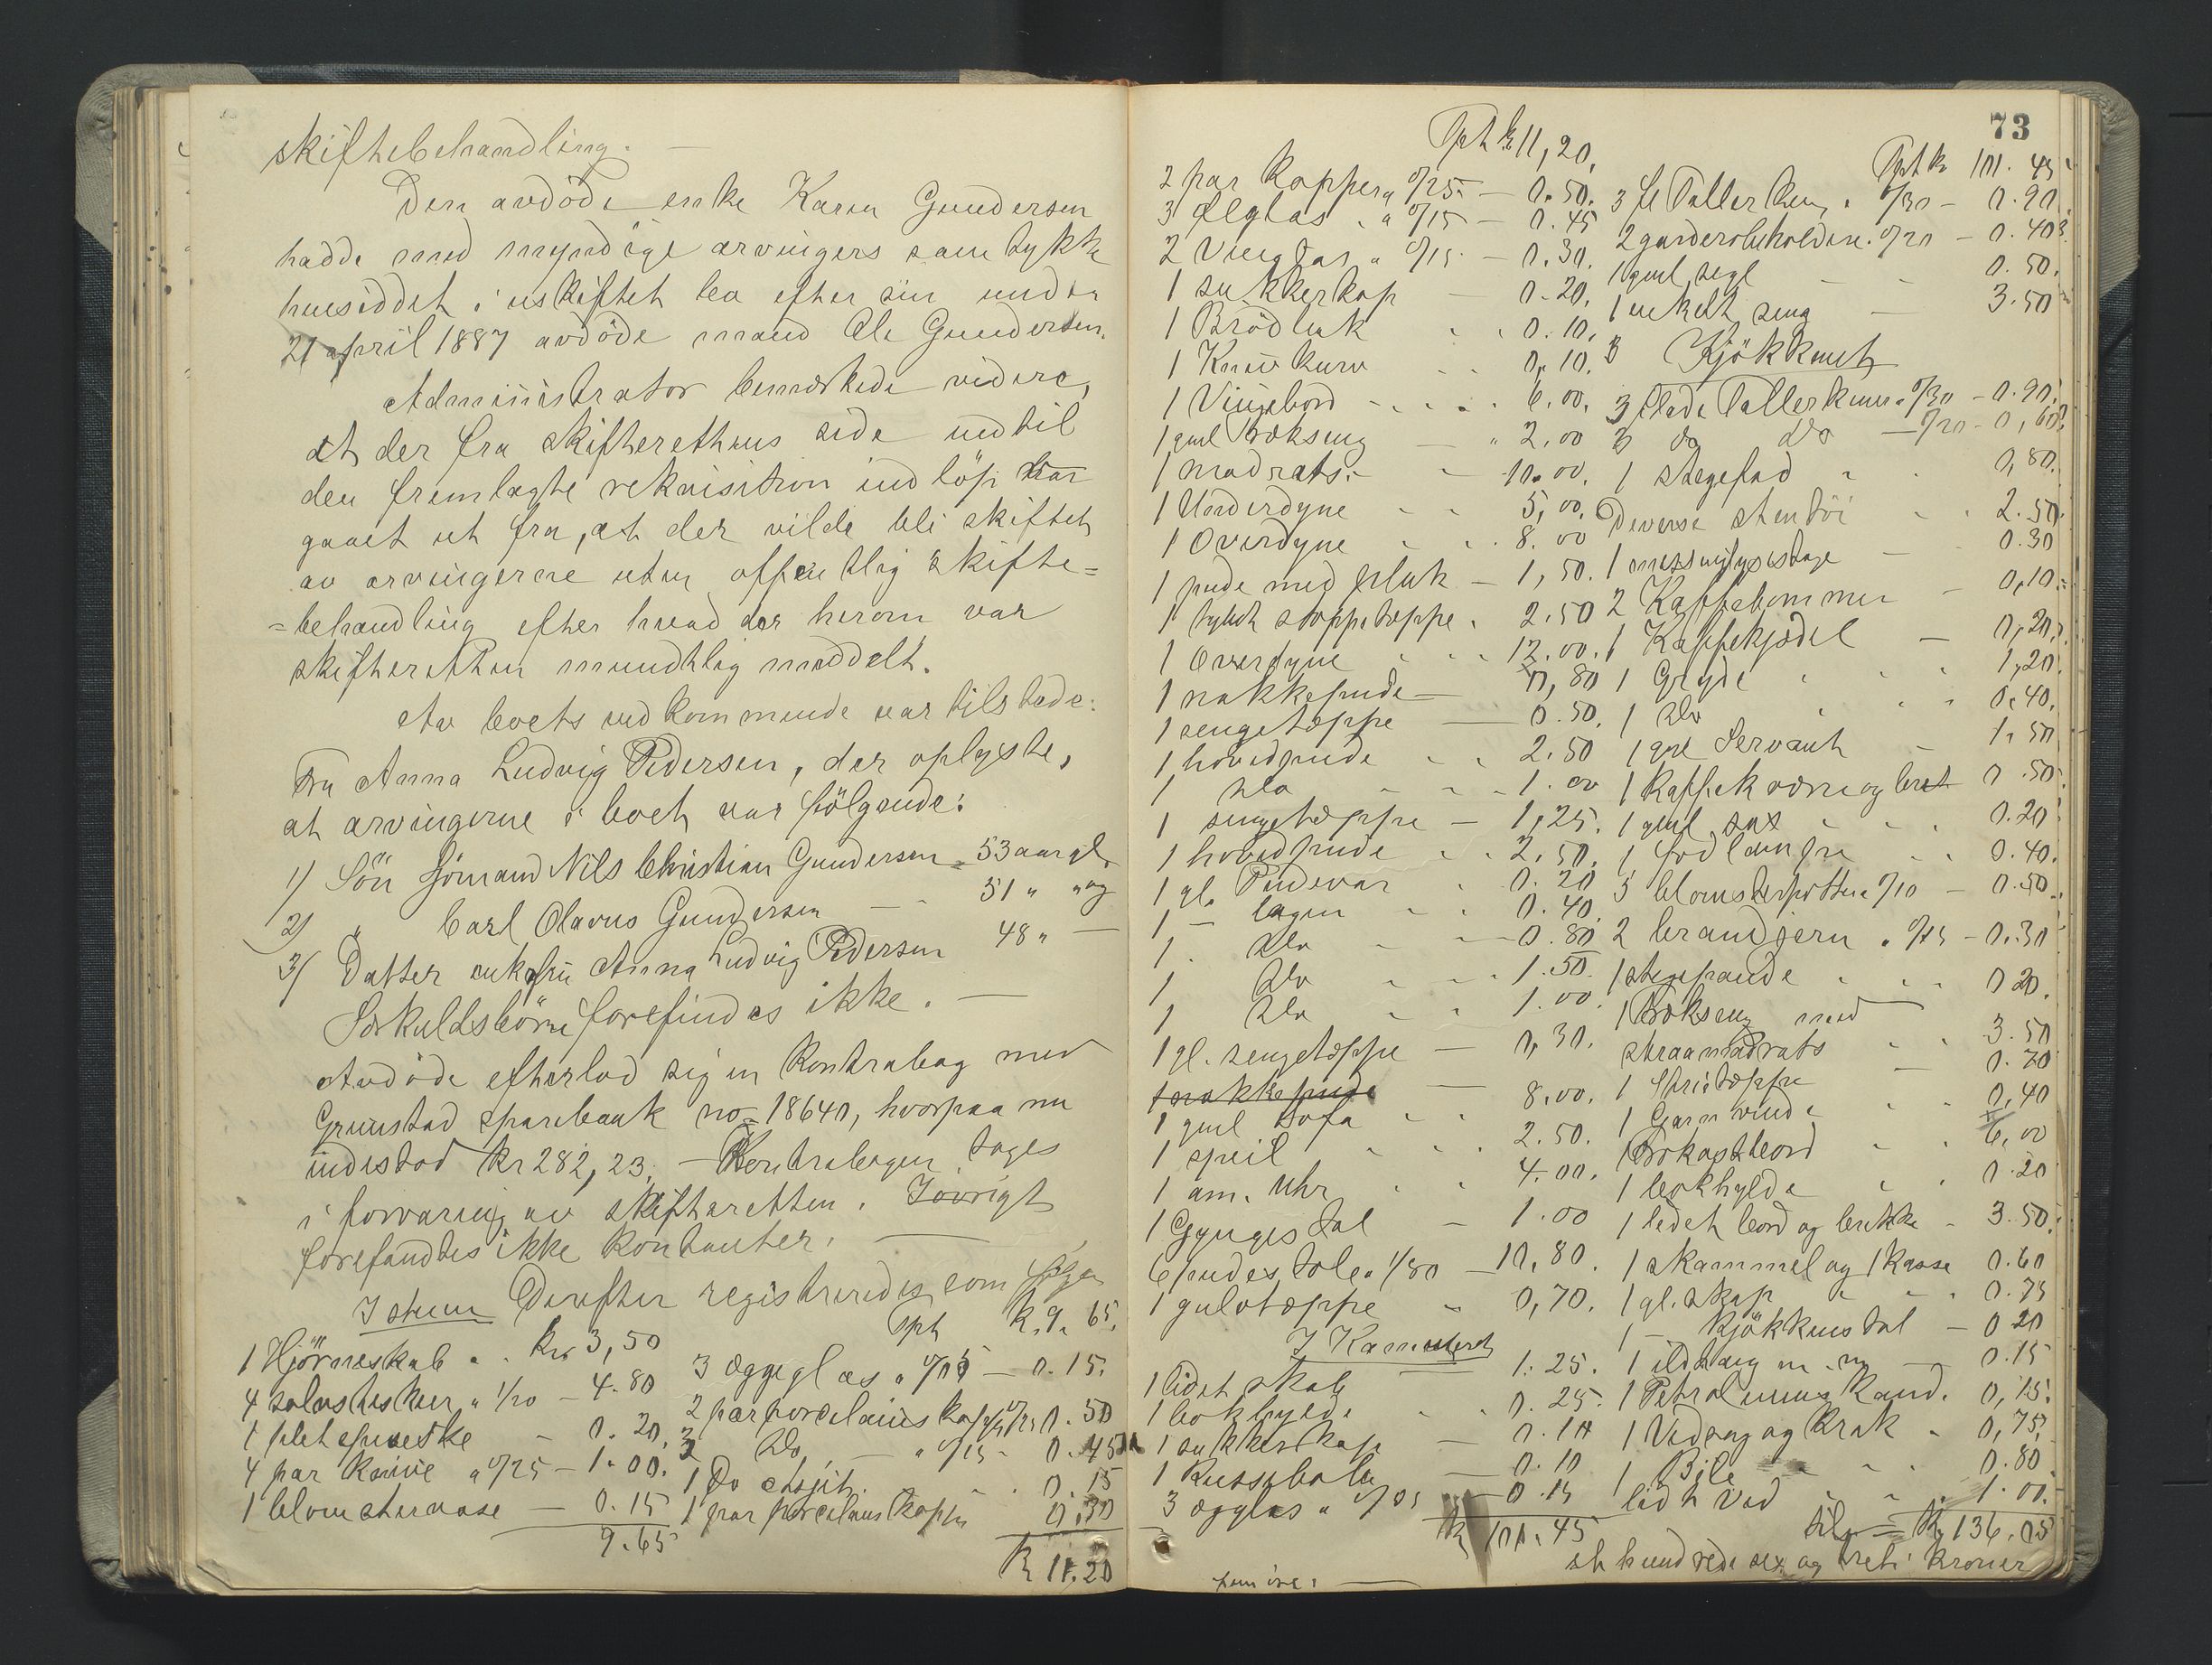 skiftebehandling. —
Den avdöde enke Karen Gundersen
hadde med myndige arvingers samtykke
hensiddet i uskiftet bo efter sin under
21 april 1887 avdöde mand Ole Gundersen.
Administrator bemerkede videre,
at der fra skifterettens side indtil
den fremlagte rekvisition indlöp har
gaaet ut fra, at der vilde bli skiftet
av arvingerne uten offentlig skifte=
=behandling efter hvad der herom var
skifteretten mundtlig meddelt.
Av boets vedkommende var tilstede:
Fru Anna Ludvig Pedersen, der oplyste,
at arvingerne i boet var fölgende:
1) Sön Sjömand Nils Christian Gundersen 53 aar gl.
2) " Carl Olavus Gundersen — 51 " " og
3) Datter enkefru Anna Ludvig Pedersen 48 " —
Særkuldsbörn forefindes ikke. —
Avdöde efterlod sig en Kontrabog med
Grimstad sparebank no 18640, hvorpaa nu
indestod kr 282,23. — Kontrabogen tages
i forvaring av skifteretten. Iövrigt
forefandtes ikke kontanter. —
I stuen Derefter registreredes som fölger
1 Hjörneskab " . kr 3,50
4 sölvteskeer " 1/20 — 4.80
1 pletspiseske - 0.20,
4 par knive " 0/25 — 1.00.
1 blomstervase — 0.15
9.65
Tpt k. 9.65.
3 æggeglas " 0/05 — 0.15.
2 par porcelains kopper 0/25 0.50
3 Do — " 0/15 - 0.45
1 Do . 0.15
1 par porcelains kopper 0.30
k 11.20
73
Tpt k 11,20.
2 par kopper " 0/25 — 0.50.
3 ølglas " " 0/15 — 0.45
2 Vinglas " 0/15 — 0.30.
1 sukkerkop — 0.20.
1 Brödbak . . 0.10.
1 Knivkurv . . 0.10.
1 Vingebord - - . . 6.00.
1 gml trækseng — " 2.00
1 madrats.- - 10.00.
1 Underdyne - - 5,00.
1 Overdyne . . 8.00
1 pude med — 1,50.
1 tykt stoppetæppe . 2.50
1 Overdyne . . . 12.00.
1 nakkepude — 0,80
1 sengetæppe — 0.50.
1 hovedpude . . 2.50
1 do - - - 1.00
1 sengetæppe — 1,25.
1 hovedpude . . 2,50.
1 gl. Pudevar . 0.20
1 — lagen . . 0.40.
1. do - — 0.80
1 do . . . 1.50.
1 do . . 1.00.
1 gl. sengetæppe — 0,30.
1 nakkepude —
1 gml sofa . . 8.00.
1 speil . . . 2.50.
1 am. Uhr . . 4.00.
1 Gyngestol — 1.00
6 pudestole " 1/80 — 10,80.
1 gulvtæppe " 0,70.
I Kammeret
1 lidet skab — 1.25.
1 bokhylde . . 0.25.
1 sukkerkop — 0.10
1 — 0.10
3 æggglas " 0/05 — 0.15
k 101.45
Tpt k 101.45
3 fl Tallerkener . 0/30 — 0.90.
2 garderobeholdere. 0/20 — 0.40
1 gml segl - - 0.50.
1 enkelt seng — 3.50
Kjökkenet
3 flade Tallerkener " 0/30 — 0.90.
3 do do — 0/20 - 0,60.
1 stegefad " . 0,80.
Diverse stentöi . . 2.50
1 messinglysestage — 0.30
2 Kaffekommer — 0,10.
1 Kaffekjedel — 0,20.
1 Gryde . . . 1,20.
1 do . . . 0.40.
1 gml Servant — 1.50
1 Kaffekværn og bret 0.50.
1 gml sax . . . 0.20
1 lodlampe . . 0.40.
5 blomsterpotter " 0/10 — 0.50.
2 brandjern " 0/15 — 0.30
1 stegepande . . . 0 20.
1 Trækseng med
straamadrats . . 3.50
1 Strietæppe — 0.70
1 Garnvinde . . 0,40
1 frokostbord . . 6,00
1 bokhylde . . 0.20
1 lidet bord og benk - 3.50.
1 skammel og 1 kasse 0.60
1 gl. skap " . . 0.75
1 — kjökkenstol — 0 20
1 ildtang m. m — 0.15
1 Petroleumskande. 0,15.
1 Vedsag og krak . 0,75.
1 Bile . . . 0.80
lidt Ved . . . 1.00.
tils = kr 136.05
et hundrede sex og treti kroner
fem öre. —